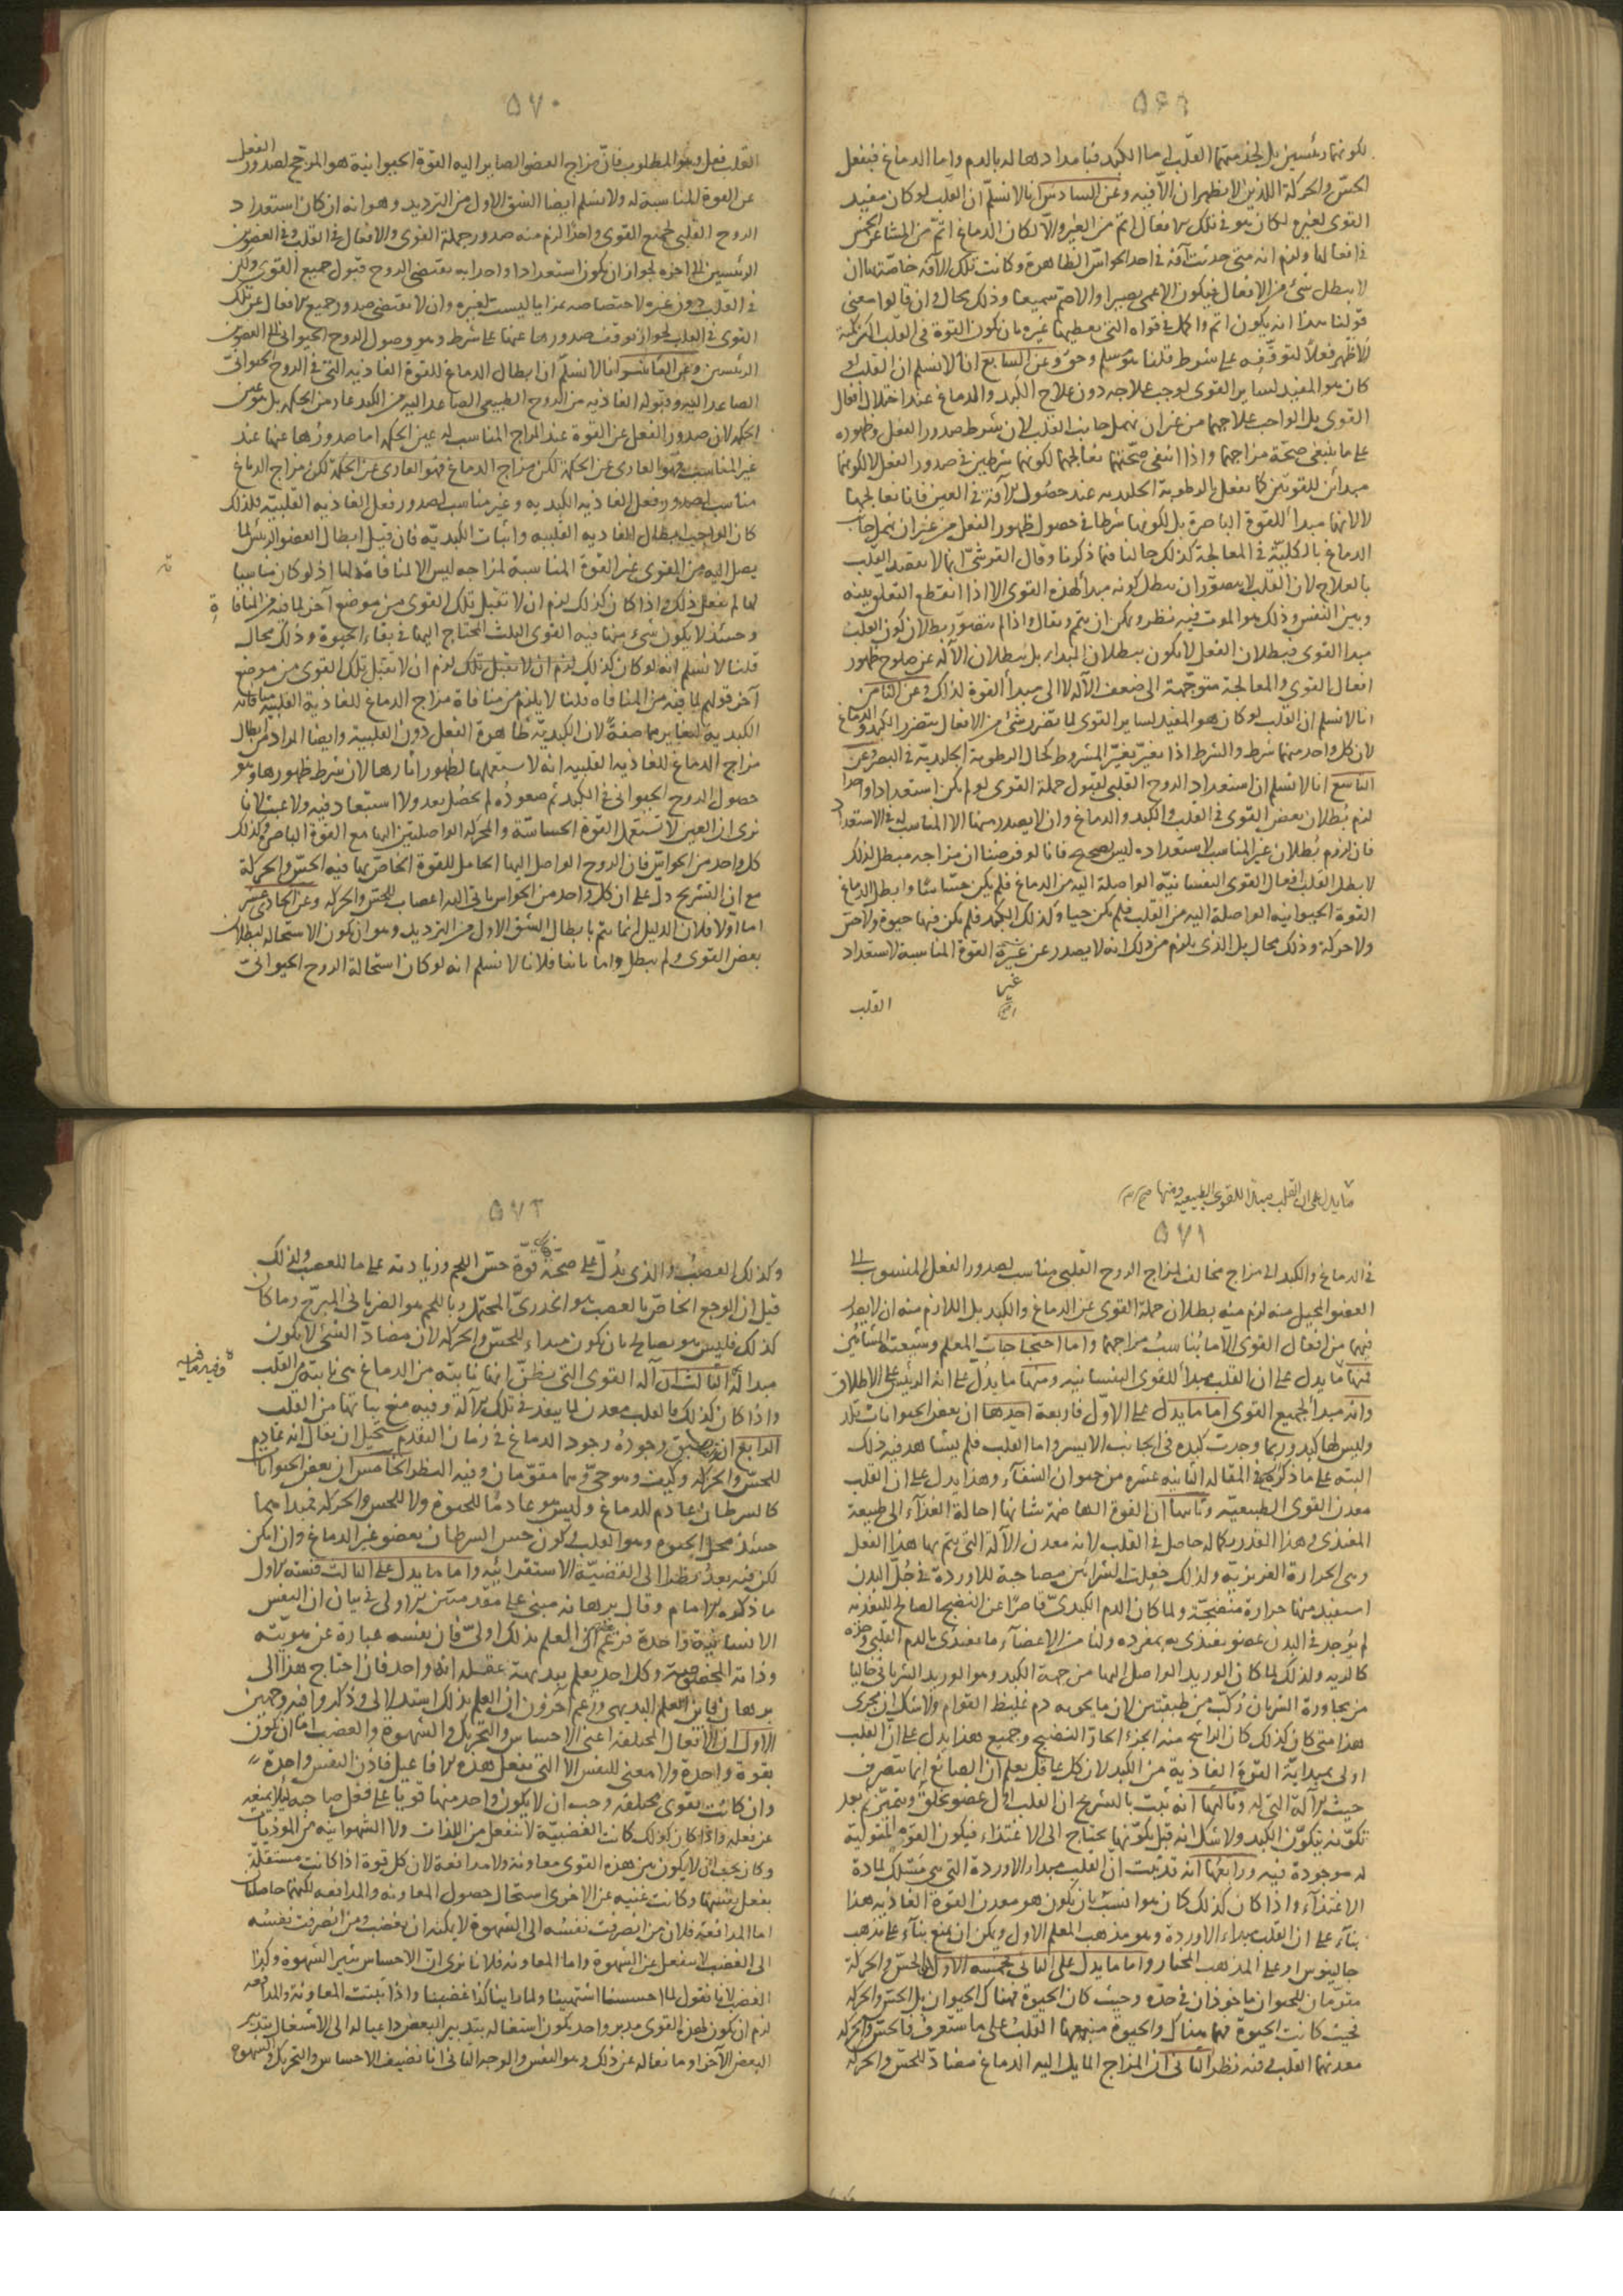 ۵۶۹
لكونهما رئيسين بل لخدمتهما القلب اما الكبد فبامدادها له بالدم واما الدماغ فبفعل
الحس والحركة اللذين لا يظهران الا فيه وعن السادس انا لا نسلم ان القلب لو كان مفيد
القوى لغيره لكان هو في تلك الافعال اتم من الغير والا لكان الدماغ اتم من المشاعر الخمس
في افعالها ولزم انه متى حدثت آفة في احد الحواس الظاهرة وكانت تلك الآفة خاصة بها ان
لا يبطل شئ من الافعال فيكون الاعمى بصيرا والاصم سميعا وذلك محال وان قالوا معنى
قولنا هذا انه يكون اتم واكمل في قواه التي يعطيها غيره بان تكون القوة في القلب اكثر لكنه
لا تظهر فعلا لتوقفه على شروط قلنا هو مسلم وحق وعن السابع انا لا نسلم ان القلب لو
كان هو المفيد لساير القوى لوجب علاجه دون علاج الكبد والدماغ عند اختلال افعال
القوى بل الواجب علاجهما من غير ان يهمل جانب القلب لان شرط صدور الفعل وظهوره
على ما ينبغي صحة مزاجهما واذا انتفى صحتهما تعالجهما لكونهما شرطين في صدور الفعل لا لكونهما
مبدأين للقوتين كما نفعل بالرطوبة الجليدية عند حصول الآفة في العين فانا نعالجها
لا لانها مبدأ للقوة الباصرة بل لكونها شرطا في حصول ظهور الفعل من غير ان نهمل جانب
الدماغ بالكلية في المعالجة كذلك حالنا فيما ذكرنا وقال القرشي انما لا نقصد القلب
بالعلاج لان القلب لا يتصور ان يبطل كونه مبدأ لهذه القوى الا اذا انقطع التعلق بينه
وبين النفس وذلك هو الموت فيه نظر ويمكن ان يتمم ويقال واذا لم يتصور بطلان كون القلب
مبدا القوى فبطلان الفعل لا يكون ببطلان المبدا بل ببطلان الآلة عن صلوح ظهور
افعال القوى والمعالجة متوجهة الى ضعف الآلة لا الى مبدأ القوة لذلك وعن الثامن
انا لا نسلم ان القلب لو كان هو المفيد لساير القوى لما تضرر شئ من الافعال بتضرر الكبد والدماغ
لان كل واحد منهما شرط والشرط اذا تغير تغير المشروط كحال الرطوبة الجليدية في البصر وعن
التاسع انا لا نسلم ان استعداد الروح القلبي لقبول جملة القوى لو لم يكن استعدادا واحدا
لزم بطلان بعض القوى في القلب والكبد والدماغ وان لا يصدر منها الا المناسب له في الاستعداد
فان لزوم بطلان غير المناسب لاستعداده ليس بصحيح فانا لو فرضنا ان مزاجه مبطل لذلك
لا بطل القلب افعال القوى النفسانية الواصلة اليه من الدماغ فلم يكن حساسا وابطل الدماغ
القوة الحيوانية الواصلة اليه من القلب فلم يكن حيا وكذلك الكبد فلم يكن فيها حيوة ولا حس
ولا حركة وذلك محال بل الذي يلزم من ذلك انه لا يصدر عن غيره القوة المناسبة لاستعداد
غير
صح
القلب
۵۷۰
القلب فعل وهو المطلوب فان مزاج العضو الصاير اليه القوة الحيوانية هو المرجح لصدور الفعل
عن القوة المناسبة له ولا نسلم ايضا الشق الاول من الترديد وهو انه ان كان استعداد
الروح القلبي لجميع القوى واحدا لزم منه صدور جملة القوى والافعال في القلب وفي العضوين
الرئيسين الى اخره لجواز ان يكون استعدادا واحدا به يقتضي الروح قبول جميع القوى ولكن
في القلب دون غيره لاختصاصه بمزايا ليست لغيره وان لا يقتضي صدور جميع الافعال عن تلك
القوى في القلب لجواز توقف صدورها عنها على شرط وهو وصول الروح الحيواني الى العضوين
الرئيسين وعن العاشر انا لا نسلم ان ابطال الدماغ للقوة الغاذية التي في الروح الحيواني
الصاعد اليه وقبوله الغاذية من الروح الطبيعي الصاعد اليه من الكبد عار من الحكمة بل هو عين
الحكمة لان صدور الفعل عن القوة عند المزاج المناسب له عين الحكمة اما صدورها عنها عند
غير المناسب فهو العاري عن الحكمة لكن مزاج الدماغ فهو العاري عن الحكمة لكن مزاج الدماغ
مناسب لصدور فعل الغاذية الكبدية وغير مناسب لصدور فعل الغاذية القلبية فلذلك
كان الواجب ابطال الغاذية القلبية واثبات الكبدية فان قيل ابطال العضو الرئيس لما
يصل اليه من القوى غير القوة المناسبة لمزاجه ليس الا لمنافاته لها اذ لو كان مناسبا
لها لم يفعل ذلك واذا كان كذلك لزم ان لا تقبل تلك القوى من موضع آخر لما فيه من المنافاة
وحينئذ لا يكون شئ منها فيه القوى الثلث المحتاج اليها في بقاء الحيوة وذلك محال
قلنا لا نسلم انه لو كان كذلك لزم ان لا تقبل تلك لزم ان لا تقبل تلك القوى من موضع
آخر قولهم لما فيه من المنافاه قلنا لا يلزم من منافاة مزاج الدماغ للغاذية القلبية منافاته
الكبدية لتغايرهما صفة لان الكبدية ظاهرة الفعل دون القلبية وايضا المراد من ابطال
مزاج الدماغ للغاذية القلبية انه لا يستعملها لظهور اثارها لان شرط ظهورها وهو
حصول الروح الحيواني في الكبد ثم صعوده لم يحصل بعد ولا استبعاد فيه ولا عبث لانا
نرى ان العين لا تستعمل القوة الحساسة والمحركة الواصلتين اليها مع القوة الباصرة وكذلك
كل واحد من الحواس فان الروح الواصل اليها الحامل للقوة الخاص بها فيه الحس والحركة
مع ان التشريح دل على ان كل واحد من الحواس ياتي اليه اعصاب للحس والحركة وعن الحادي عشر
اما اولا فلان الدليل انما يتم بابطال الشق الاول من الترديد وهو ان يكون الاستحالة لبطلان
بعض القوى ولم يبطل واما ثانيا فلانا لا نسلم انه لو كان استحالة الروح الحيواني
ما يدل على ان القلب مبدا للقوى الطبيعية ومنها صح
۵۷۱
في الدماغ والكبد الى مزاج مخالف لمزاج الروح القلبي مناسب لصدور الفعل المنسوب الى
العضو المحيل منه لزم منه بطلان جملة القوى عن الدماغ والكبد بل اللازم منه ان لا يصدر
فيهما من افعال القوى الا ما يناسب مزاجهما واما احتجاجات المعلم وشيعته المشائين
فمنها ما يدل على ان القلب مبدأ للقوى النفسانية ومنها ما يدل على انه الرئيس على الاطلاق
وانه مبدأ لجميع القوى اما ما يدل على الاول فاربعة احدها ان بعض الحيوانات تلد
وليس لها كبد وربما وجدت كبده في الجانب الايسر واما القلب فلم يشاهد فيه ذلك
البتة على ما ذكر في المقالة الثانية عشره من حيوان الشفآء وهذا يدل على ان القلب
معدن القوى الطبيعية وثانيها ان القوة الهاضمة شانها احالة الغذآء الى طبيعة
المغتذي وهذا القدر بكماله حاصل في القلب لانه معدن الآلة التي يتم بها هذا الفعل
وهي الحرارة الغريزية ولذلك جعلت الشرايين مصاحبة للاوردة في جل البدن
استفيد منها حرارة منضجة ولما كان الدم الكبدي قاصرا عن النضج الصالح للتغذية
لم يوجد في البدن عضو يغتذي به بمفرده ولنا من الاعضآء ما يغتذي بالدم القلبي وحده
كالرية ولذلك لما كان الوريد الواصل اليها من جهة الكبد وهو الوريد الشرياني خاليا
من مجاورة الشريان ركب من طبقتين لان ما يحويه دم غليظ القوام ولا شك ان مجرى
هذا متى كان كذلك كان الراشح منه الجزء الحار النضيج وجميع هذا يدل على ان القلب
اولى بمبدائية القوة الغاذية من الكبد لان كل عاقل يعلم ان الصانع انما يتصرف
حيث الآلة التي له وثالثها انه ثبت بالتشريح ان القلب اول عضو يخلق ويتميز ثم بعد
تكونه يتكون الكبد ولا شك انه قبل تكونها يحتاج الى الاغتذاء فيكون القوة المتولية
له موجودة فيه ورابعها انه قد ثبت ان القلب مبدا الاوردة التي هي مسلك لمادة
الاغتذآء واذا كان كذلك كان هو انسب بان يكون هو معدن القوة الغاذية هذا
بنآء على ان القلب مبداء الاوردة وهو مذهب المعلم الاول ويمكن ان يمنع بنآء على مذهب
جالينوس او على المذهب المختار واما ما يدل على الثاني فخمسة الاول ان الحس والحركة
مقومان للحيوان ماخوذان في حده وحيث كان الحيوة فهناك الحيوان بل الحس والحركة
فحيث كانت الحيوة فهما هناك والحيوة منبعها القلب على ما ستعرف فالحس والحركة
معدنهما القلب وفيه نظر الثاني ان المزاج المايل اليه الدماغ مضاد للحس والحركة
۵۷۲
وكذلك العصب والذي يدل على صحته قوة حس اللحم وزيادته على ما للعصب ولذلك
قيل ان الوجع الخاص بالعصب هو الخدري المحتمل وباللحم هو الضرباني المبرح وما كان
كذلك فليس هو بصالح بان يكون مبداء للحس والحركة لان مضاد الشئ لا يكون
مبدا له الثالث ان آلة القوى التي يظن انها نابتة من الدماغ هي نابتة من القلب
وفيه ما فيه
واذا كان كذلك فالقلب معدن لما ينفذ في تلك الآلة وفيه منع نباتها من القلب
الرابع ان يسبق وجوده وجود الدماغ في زمان التقدم يستحيل ان يقال انه عادم
للحس والحركة وكيف وهو حي وهما مقومان وفيه النظر الخامس ان بعض الحيوانات
كالسرطان عادم للدماغ وليس هو عادما للحيوة ولا للحس والحركة فمبداهما
حينئذ محل الحيوة وهو القلب وكون حس السرطان بعضو غير الدماغ وان امكن
لكن فيه بعد نظرا الى القضية الاستقرائية واما ما يدل على الثالث فستة الاول
ما ذكره الامام وقال برهانه مبني على مقدمتين الاولى في بيان ان النفس
الانسانية واحدة فزعم بعضهم ان العلم بذلك اولي فان نفسه عبارة عن هويته
وذاته المخصوصة وكل احد يعلم ببديهة عقله انه واحد فان احتاج هذا الى
برهان فاين العلم البديهي وزعم آخرون ان العلم بذلك استدلالي وذكروا فيه وجهين
الاول ان الافعال المختلفة اعني الاحساس والتحريك والشهوة والغضب اما ان يكون
بقوة واحدة ولا معنى للنفس الا التي تفعل هذه الافاعيل فاذن النفس واحدة
وان كانت بقوى مختلفة وجب ان لا يكون واحد منها قويا على فعل صاحبه ليمنعه
عن فعله واذا كان كذلك كانت الغضبية لا تنفعل من اللذات ولا الشهوانية من الموذيات
وكان يجب ان لا يكون بين هذه القوى معاونة ولا مدافعة لان كل قوة اذا كانت مستقلة
بفعل نفسها وكانت غنية عن الاخرى استحال حصول المعاونة والمدافعة لكنهما حاصلان
اما المدافعة فلان من انصرفت نفسه الى الشهوة لا يمكنه ان يغضب ومن انصرفت نفسه
الى الغضب لا ينفعل عن الشهوة واما المعاونة فلانا نرى ان الاحساس يثير الشهوة وكذا
الغضب لانا نقول لما احسسنا اشتهينا ولما راينا كذا غضبنا واذا ثبتت المعاونة والمدافعة
لزم ان يكون لهذه القوى مدبر واحد يكون اشتغاله بتدبير البعض داعيا له الى الاشتغال بتدبير
البعض الآخر او مانعا له عن ذلك وهو النفس والوجه الثاني انا نضيف الاحساس والتحريك والشهوة